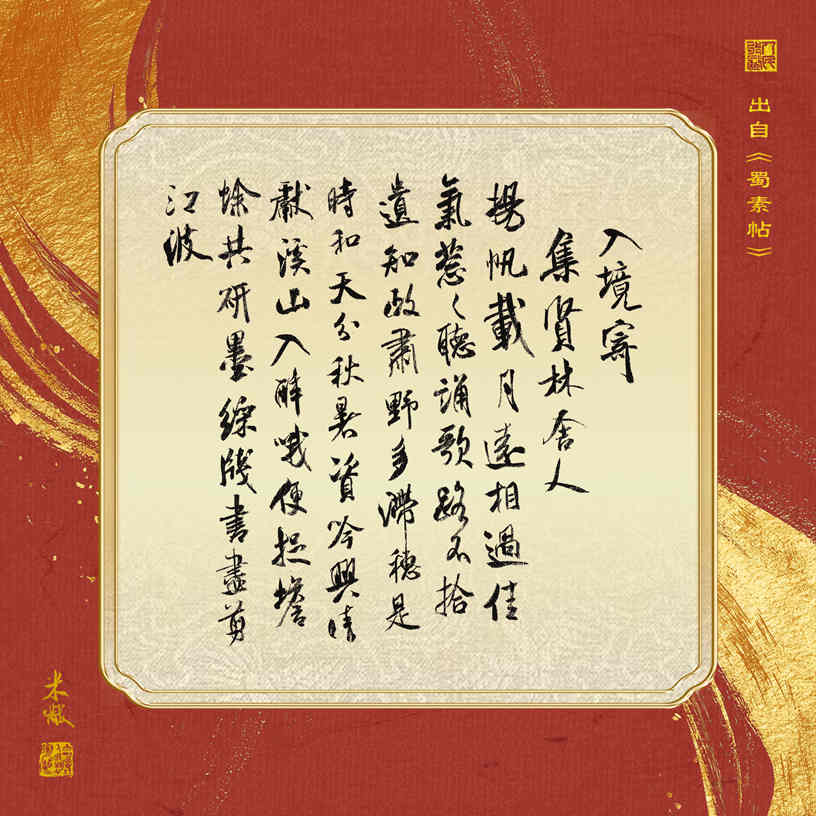 出自《蜀素帖》
入境寄
集賢林舍人
揚帆載月遠相過佳
氣葱々聽誦歌路不拾
遺知政肅野多滯穗是
時和天分秋暑資吟興晴
獻溪山入醉哦便捉蟾
蜍共研墨綵牋書盡剪
江波
米黻